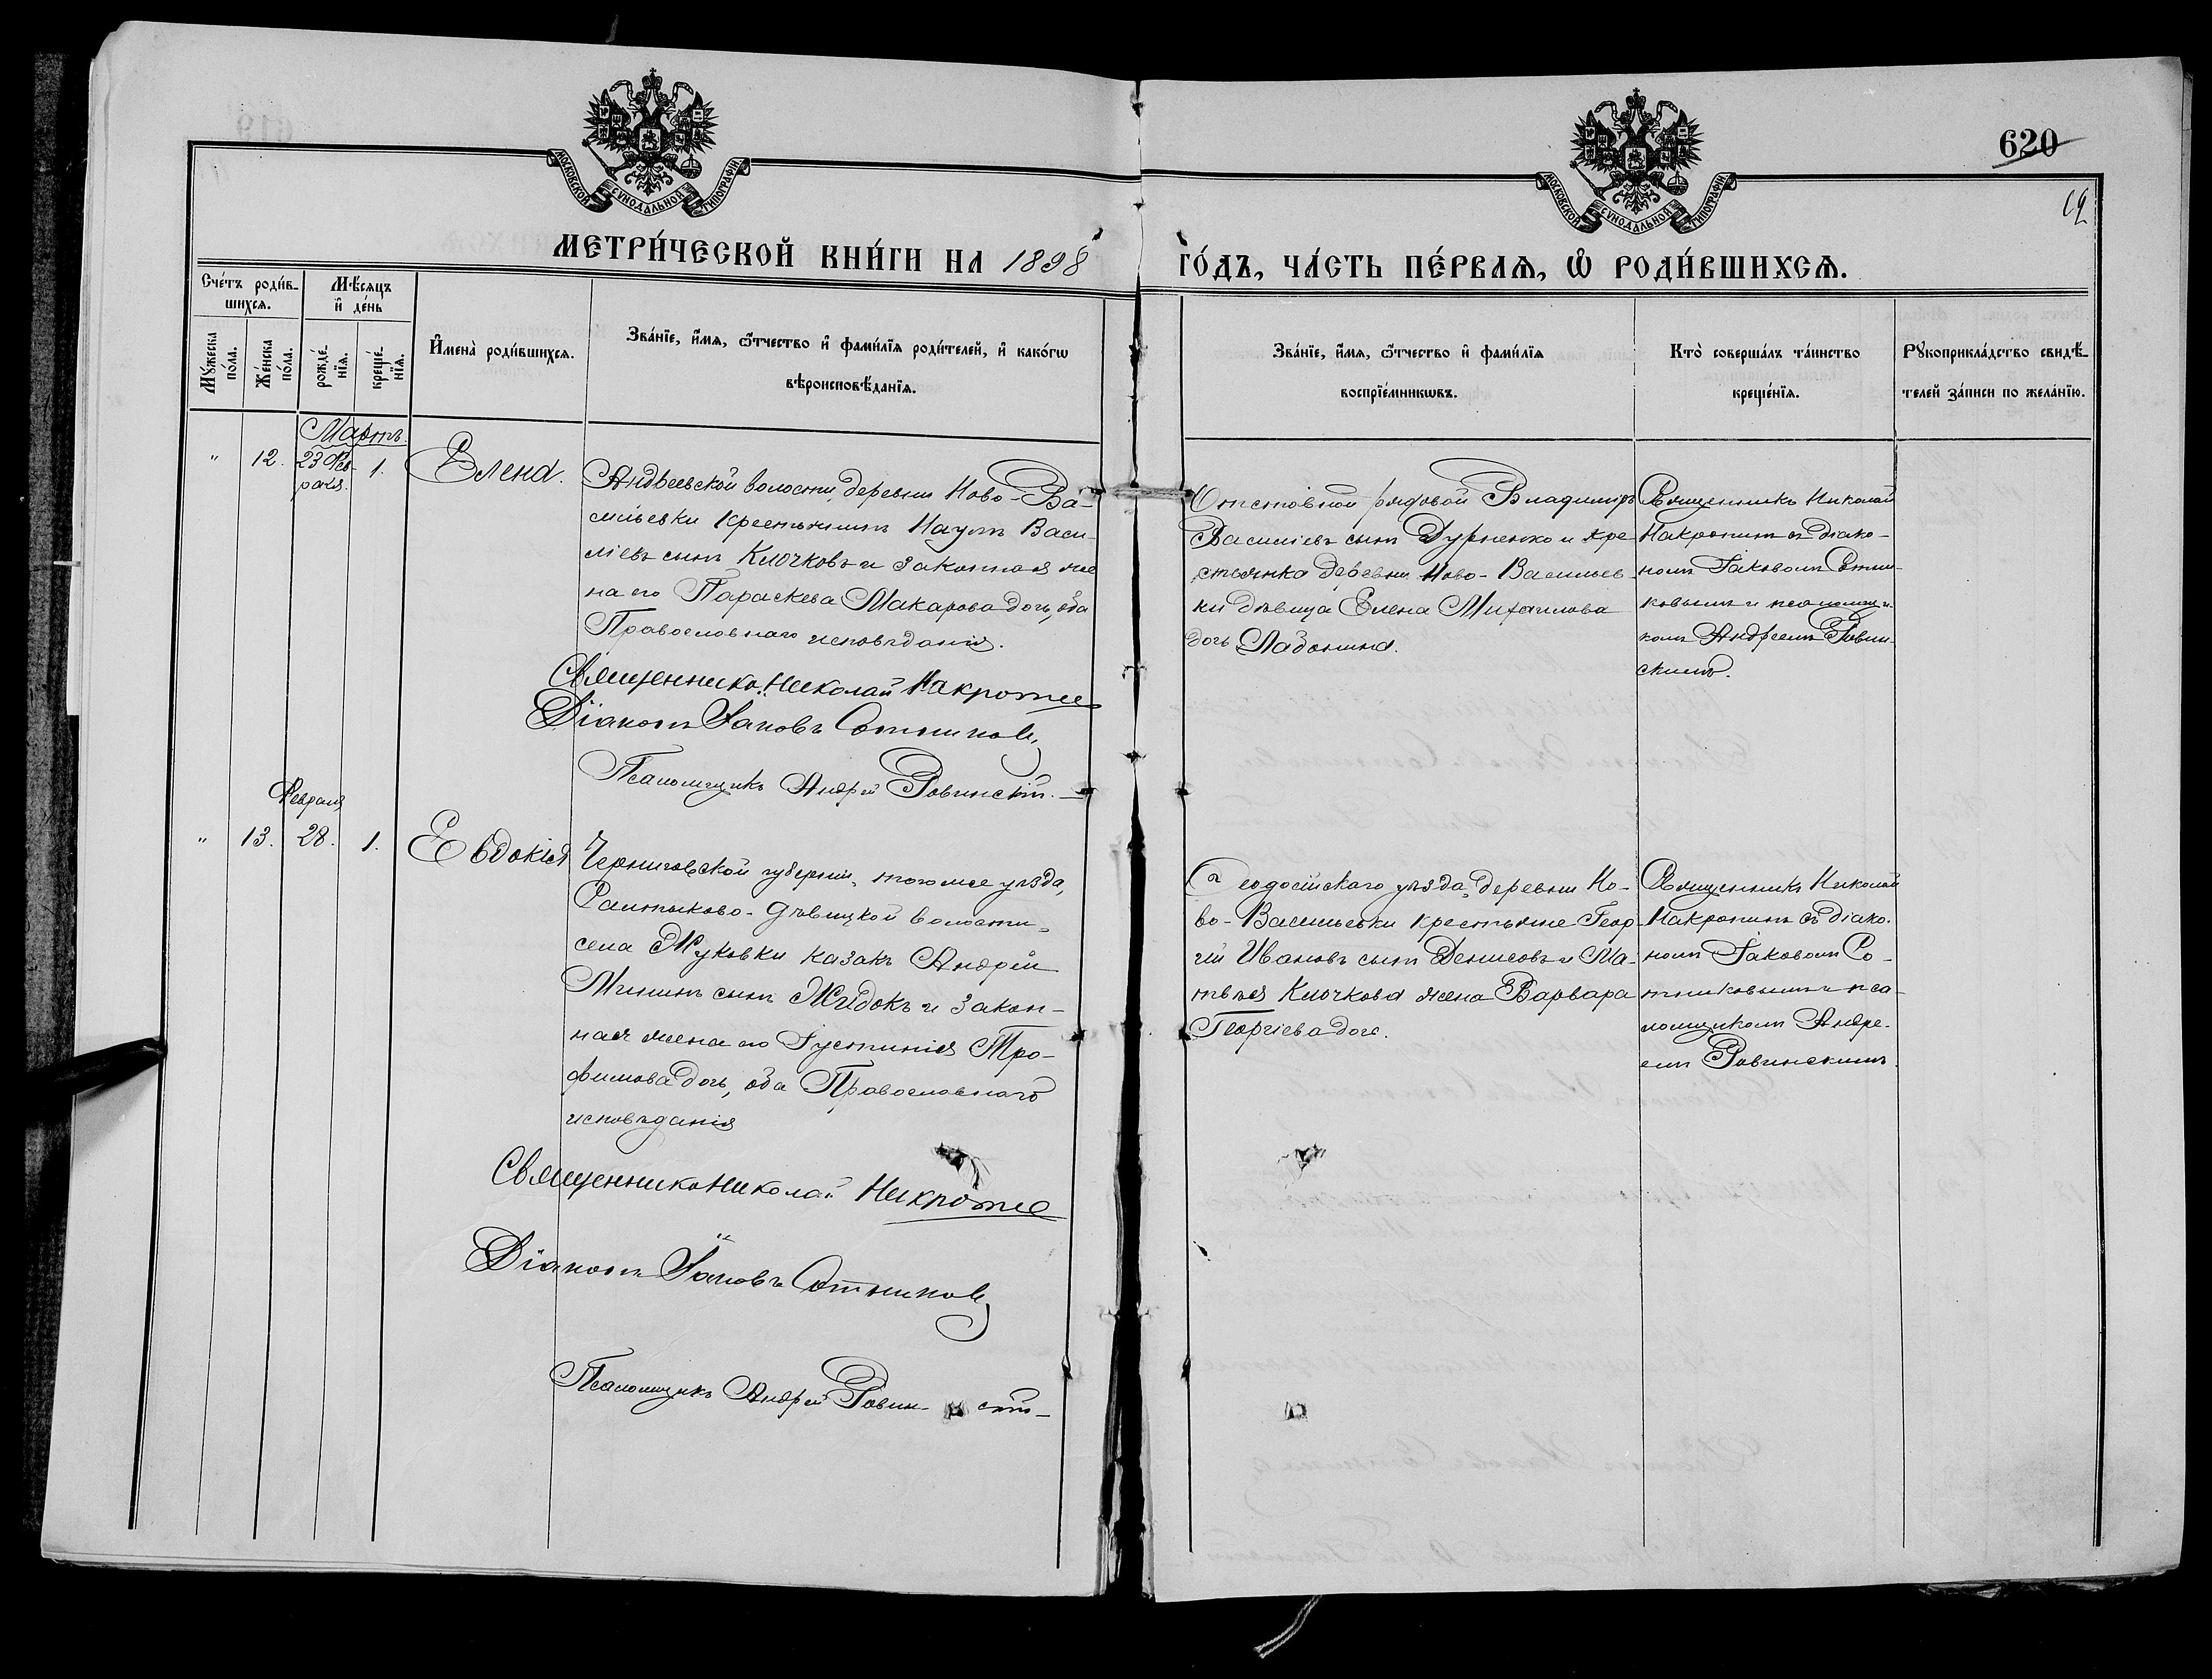 620
19
МОСКОВСКОЙ СѴНОДАЛЬНОЙ ТИПОГРАФІИ
МОСКОВСКОЙ СѴНОДАЛЬНОЙ ТИПОГРАФІИ
МЕТРИ́ЧЕСКОЙ КНИ́ГИ НА 1898
ГО́ДЪ, ЧА́СТЬ ПЕ́РВАѦ, Ѡ҆ РОДИ́ВШИХСѦ.
Сче́тъ роди́в-
шихсѧ.
Мѣ́сѧцъ
и҆ де́нь
Мꙋ́жеска
по́ла.
Же́нска
по́ла.
рожде́-
нїѧ.
креще́-
нїѧ.
И҆мена̀ роди́вшихсѧ.
Зва́нїе, и҆́мѧ, ѻ҆́тчество и҆ фами́лїѧ роди́телей, и҆ како́гѡ
вѣроисповѣ́данїѧ.
Зва́нїе, и҆́мѧ, ѻ҆́тчество и҆ фами́лїѧ
воспрїе́мникѡвъ.
Кто̀ соверша́лъ та́инство
креще́нїѧ.
Рꙋкоприкла́дство свидѣ́-
телей за́писи по жела́нїю.
Мартъ.
" 12. 23 Фев- 1. Елена.
раля.
Андреевской волости, деревни Ново-Ва-
сильевки крестьянинъ Наумъ Васи-
ліевъ сынъ Клочковъ и законная же
на его Параскева Макарова дочь, оба
Православнаго исповѣданія.
Священникъ Николай Макротие
Діаконъ Іаковъ Сотников,
Псаломщикъ Андрей Ровинскій.
Отставной рядовой Владиміръ
Василіевъ сынъ Дурненко и кре
стьянка деревни Ново-Васильев-
ки дѣвица Елена Михаилова
дочь Ладонина.
Священникъ Николай
Макротинъ съ діако-
номъ Іаковомъ Сотни-
ковымъ и псаломщи-
комъ Андреемъ Ровин-
скимъ.
Февраля
" 13. 28. 1. Евдокія
Черниговской губерніи, того же уѣзда,
Салтыково-Дѣвицкой волости,
села Жуковки казакъ Андрей
Мининъ сынъ Жидокъ и закон-
ная жена его Іустинія Тро-
фимова дочь, оба Православнаго
исповѣданія
Священникъ Николай Макротие
Діаконъ Іаковъ Сотников,
Псаломщикъ Андрей Ровин скій
Ѳеодосійскаго уѣзда, деревни Но-
во-Васильевки крестьяне Геор
гій Ивановъ сынъ Денисовъ и Ма-
твѣя Клочкова жена Варвара
Георгіева дочь.
Священникъ Николай
Макротинъ съ діако-
номъ Іаковомъ Со-
тниковымъ и пса-
ломщикомъ Андре-
емъ Ровинскимъ.